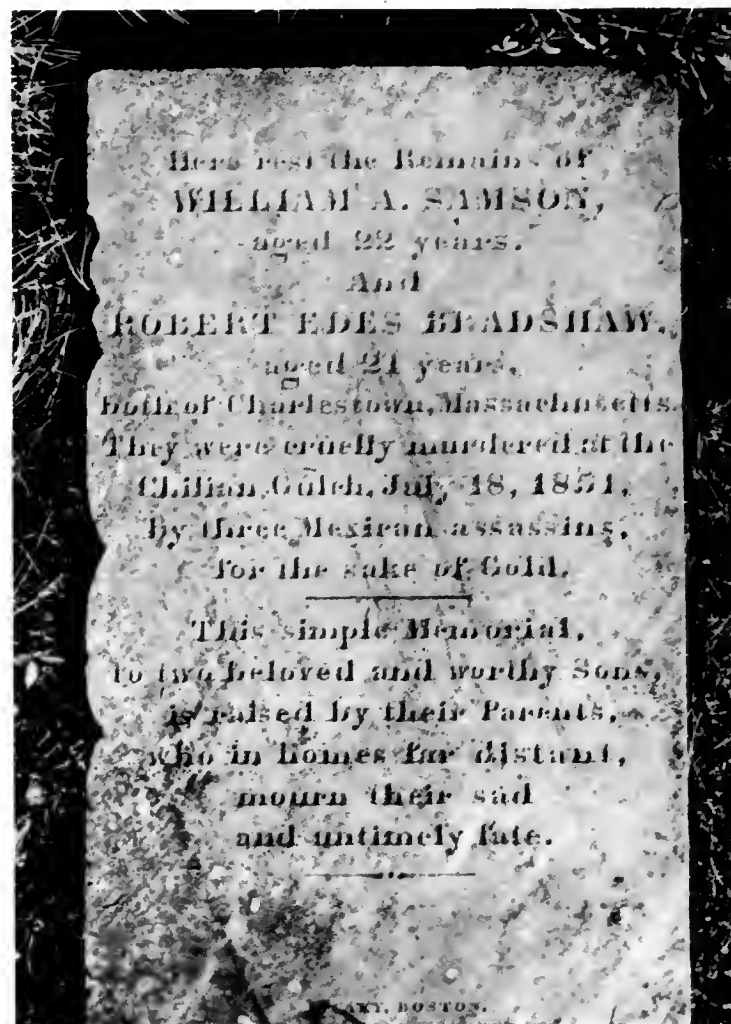 Here rest the Remains of
WILLIAM A. SAMSON,
aged 22 years.
And
ROBERT EDES BRADSHAW,
aged 21 years,
both of Charlestown, Massachusetts.
They were cruelly murdered at the
Chilian Gulch, July 18, 1851,
by three Mexican assassins,
for the sake of Gold.
This simple Memorial,
to two beloved and worthy Sons,
is raised by their Parents,
who in homes far distant,
mourn their sad
and untimely fate.
BOSTON.